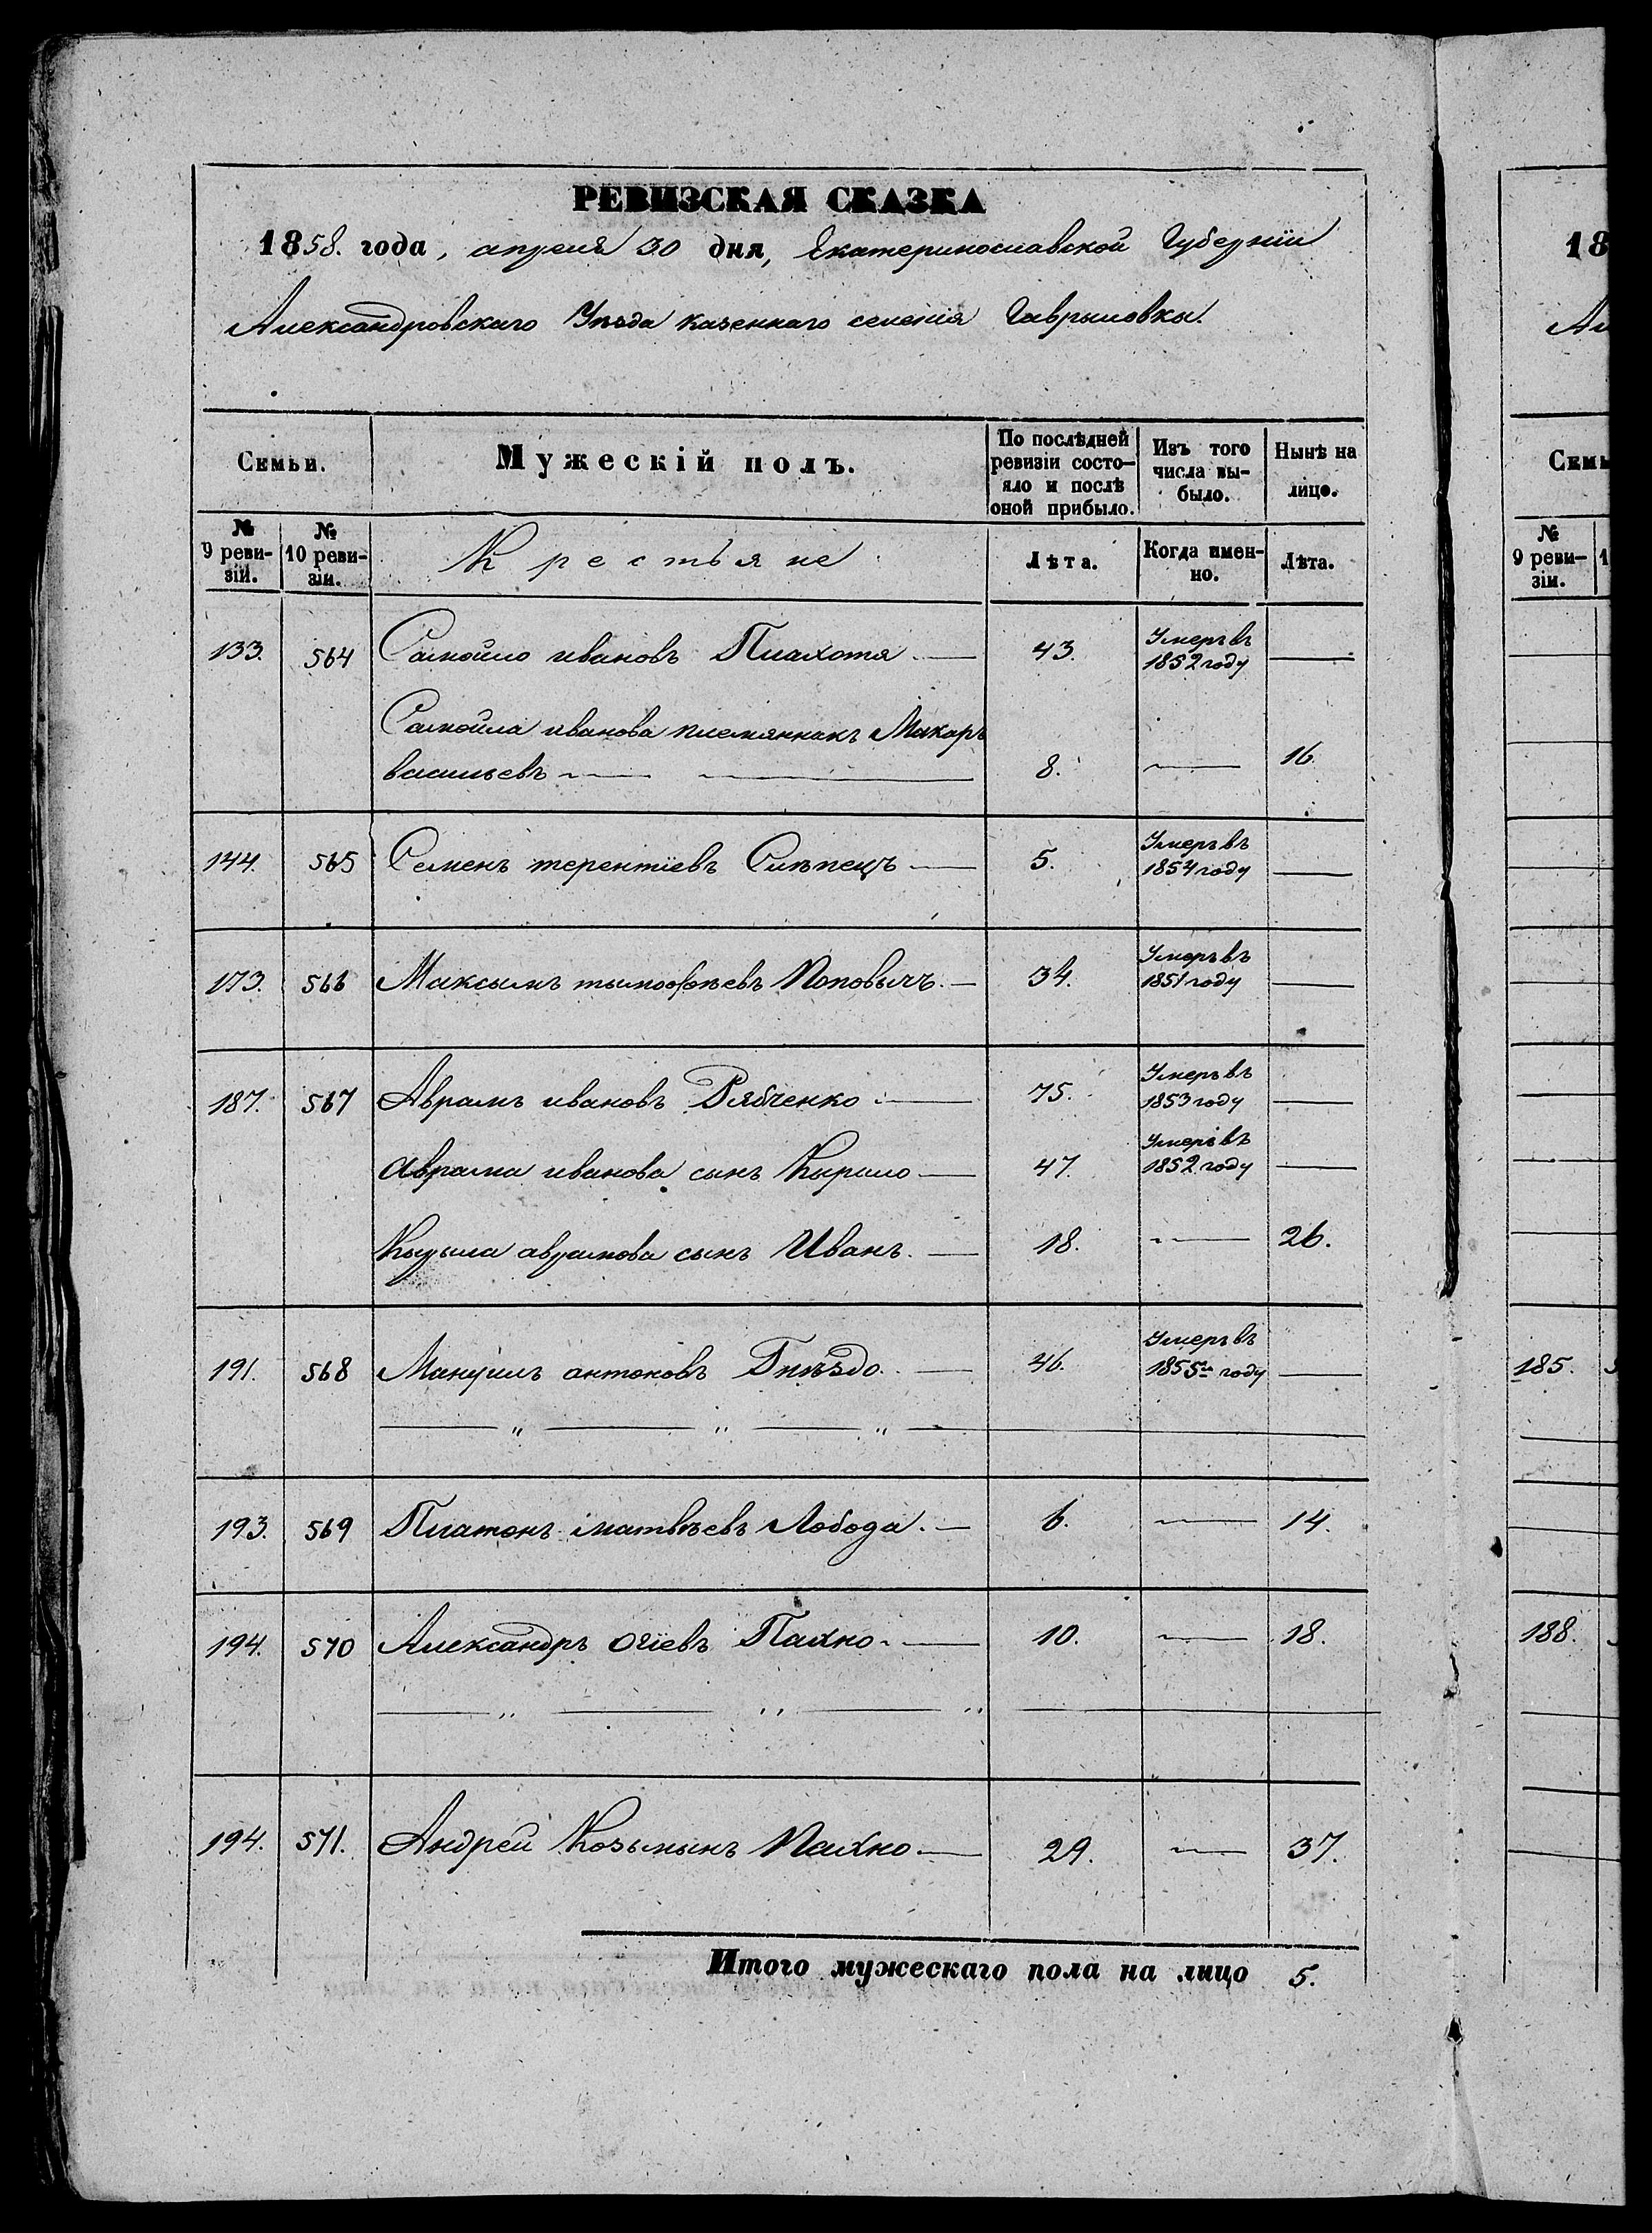 РЕВИЗСКАЯ СКАЗКА
1858. года, апреля 30 дня, Екатеринославской Губернїи
Александровскаго Уѣзда казеннаго селенїя Гаврыловкы.
Семьи. Мужескій полъ. По послѣдней ревизіи состо-яло и послѣ оной прибыло. Изъ того числа вы-было. Нынѣ на лицо.
№ 9 реви-зіи. № 10 реви-зіи. Крестьяне Лѣта. Когда имен-но. Лѣта.
133. 564 Самойло ивановъ Плахотя. — 43. Умеръ въ 1852 году —
Самойла иванова племянныкъ Макаръ
васильевъ — 8. — 16.
144. 565 Семенъ терентїевъ Слѣпецъ — 5. Умеръ въ 1854 году —
173. 566 Максымъ тымофѣевъ Поповычъ. — 34. Умеръ въ 1851 году —
187. 567 Аврамъ ивановъ Рябченко. — 75. Умеръ въ 1853 году —
Аврама иванова сынъ Кырило — 47. Умеръ въ 1852 году —
Кырыла аврамова сынъ Иванъ. — 18. — 26.
191. 568 Мануилъ антоновъ Гнѣздо. — 46. Умеръ въ 1855м году —
— " — " — " —
193. 569 Платонъ матвѣевъ Лобода. — 6. — 14.
194. 570 Александръ Пахно. — 10. — 18.
— " — " — " —
194. 571. Андрей Козьмынъ Пахно — 29. — 37.
Итого мужескаго пола на лицо 5.
18
Ал
Семь
№ 9 реви-зіи. 1
185.
188.